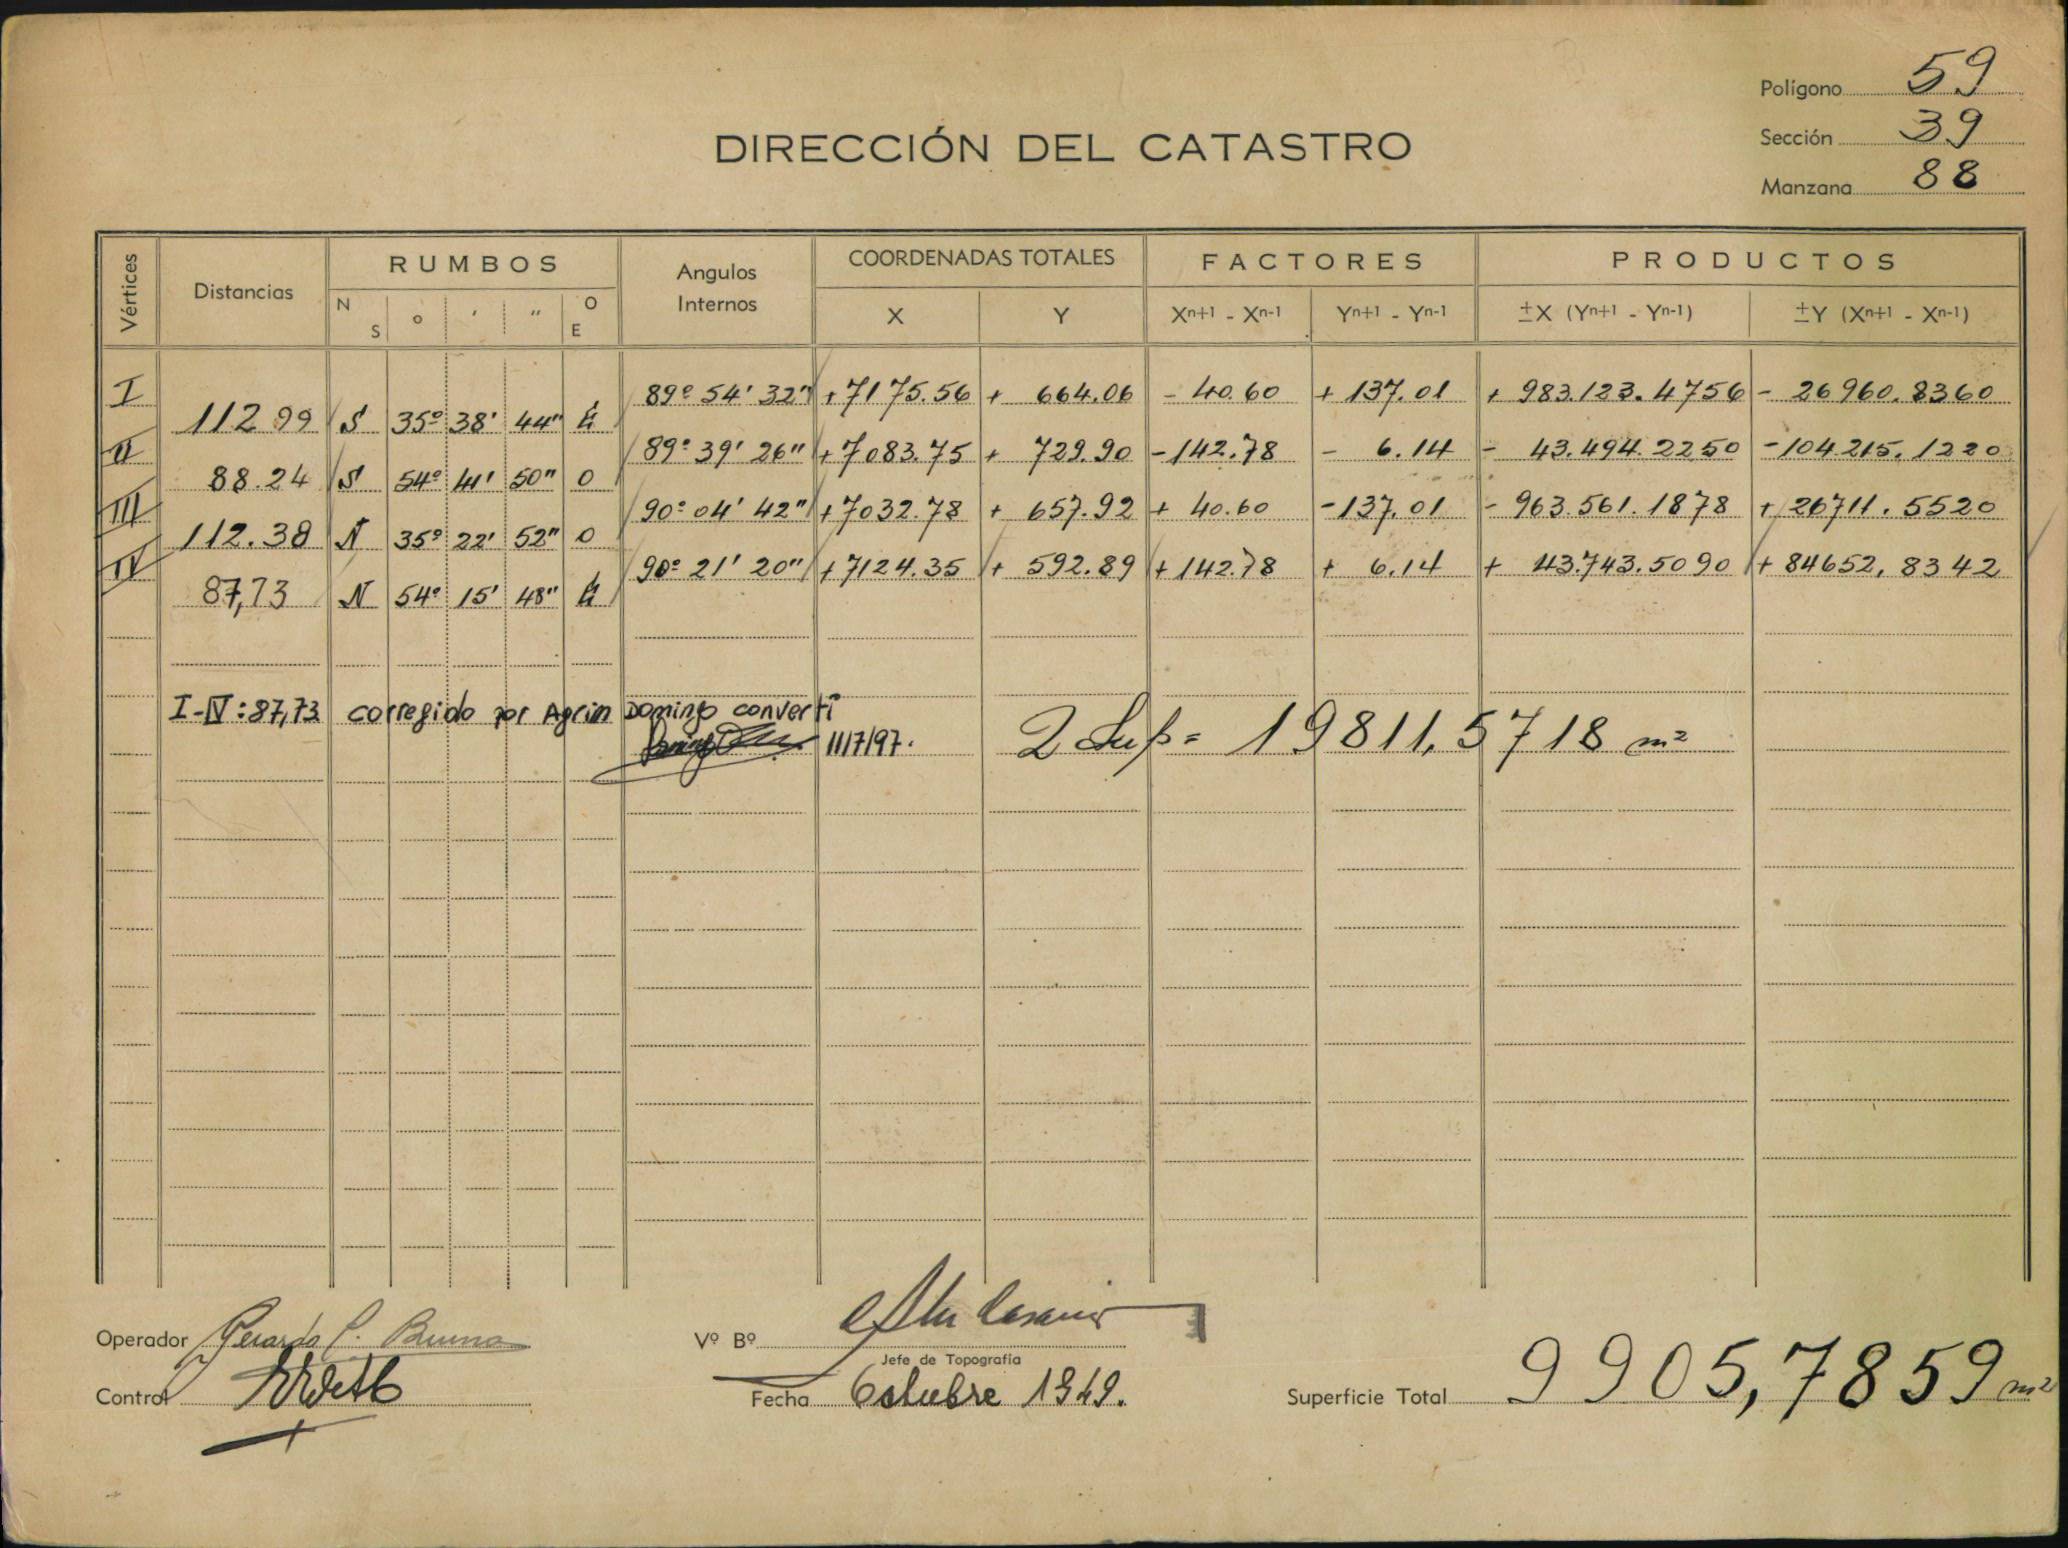 Polígono 59
Sección 39
Manzana 88
DIRECCIÓN DEL CATASTRO
Vértices Distancias RUMBOS Angulos Internos COORDENADAS TOTALES FACTORES PRODUCTOS
N S o ' " O E X Y Xn+1 - Xn-1 Yn+1 - Yn-1 ±X (Yn+1 - Yn-1) ±Y (Xn+1 - Xn-1)
I 89° 54' 32" +7175.56 + 664.06 - 40.60 + 137.01 + 983.123.4756 - 26960.8360
112.99 S 35° 38' 44" E
II 89° 39' 26" +7083.75 + 729.90 -142.78 - 6.14 - 43.494.2250 -104.215.1220
88.24 S 54° 41' 50" O
III 90° 04' 42" +7032.78 + 657.92 + 40.60 -137.01 - 963.561.1878 + 26711.5520
112.38 N 35° 22' 52" O
IV 90° 21' 20" +7124.35 + 592.89 +142.78 + 6.14 + 43.743.5090 + 84652,8342
87,73 N 54° 15' 48" E
I-IV: 87,73 corregido por Agrim Domingo converti
11/7/97.
2 Sup = 19811,5718 m²
Operador Gerardo C. Bruno
Vº Bº
Jefe de Topografía
Control
Fecha Octubre 1949.
Superficie Total 9905,7859 m²